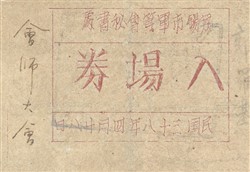 市軍管會秘書處
入場券
民國三十八年四月廿八日
會師大會